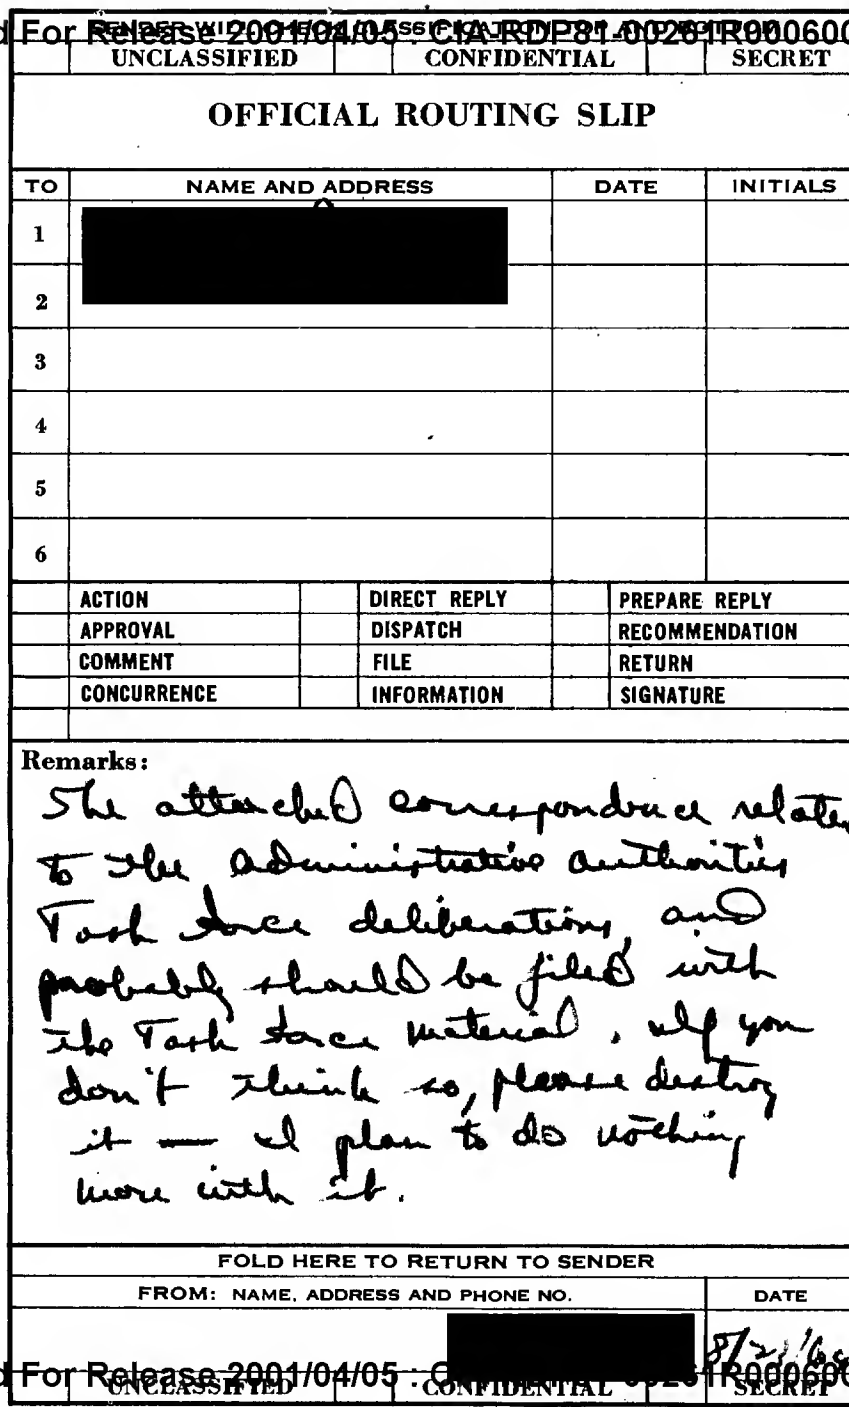 d For Release 2001/04/05 : CIA-RDP81-00261R000600
SENDER WILL CHECK CLASSIFICATION TOP AND BOTTOM
UNCLASSIFIED CONFIDENTIAL SECRET
OFFICIAL ROUTING SLIP
TO NAME AND ADDRESS DATE INITIALS
1
2
3
4
5
6
ACTION DIRECT REPLY PREPARE REPLY
APPROVAL DISPATCH RECOMMENDATION
COMMENT FILE RETURN
CONCURRENCE INFORMATION SIGNATURE
Remarks:
The attached correspondence relates
to the administrative authorities
Task Force deliberations, and
probably should be filed with
the Task Force material. If you
don't think so, please destroy
it — I plan to do nothing
more with it.
FOLD HERE TO RETURN TO SENDER
FROM: NAME, ADDRESS AND PHONE NO. DATE
d For Release 2001/04/05 : 00261R000600
UNCLASSIFIED CONFIDENTIAL SECRET